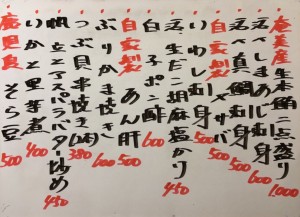 奄美産生本鮪二点盛り 1.000
天然しまあじ刺身 600
天然真鯛刺身 500
自家製〆サバ 500
いわし刺身 500
天然生だこ胡麻塩かり 450
白子ポン酢 600
自家製あん肝 500
ぶりかま焼き 600
つぶ貝串焼き 380
帆立とアスパラバター炒め 450
いかと里芋煮 400
鹿児島そら豆 500